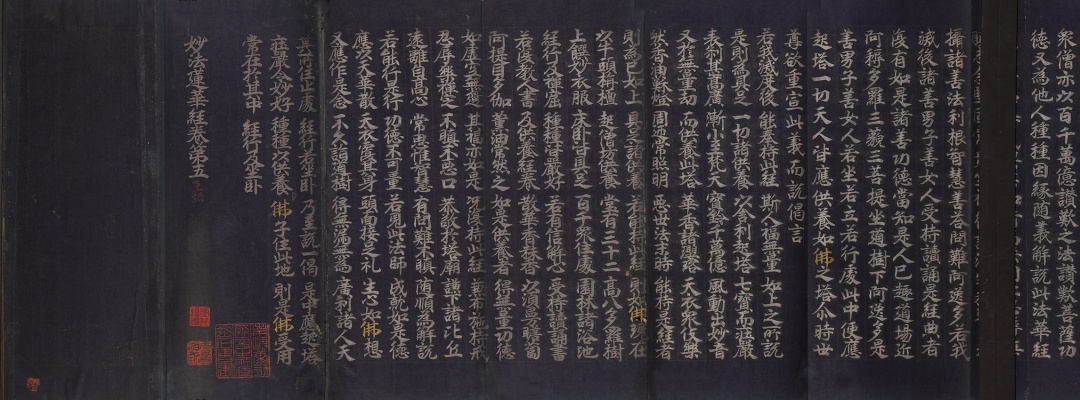 眾僧亦以百千萬億讚歎之法讚歎菩薩功
德又為他人種種因緣随義解說此法華經
攝諸善法利根智慧善答問難阿逸多若我
滅後諸善男子善女人受持讀誦是經典者
復有如是諸善功德當知是人已趣道場近
阿耨多羅三藐三菩提坐道樹下阿逸多是
善男子善女人若坐若立若行處此中便應
起塔一切天人皆應供養如佛之塔尒時世
尊欲重宣此義而說偈言
若我滅度後　能奉持此經　斯人福無量　如上之所說
是則為具足　一切諸供養　以舍利起塔　七寶而莊嚴
表剎甚高廣　漸小至梵天　寶鈴千萬億　風動出妙音
又於無量劫　而供養此塔　華香諸瓔珞　天衣眾伎樂
然香油酥燈　周匝常照明　惡世法末時　能持是經者
則為已如上　具足諸供養　若能持此經　則如佛現在
以牛頭栴檀　起僧坊供養　堂有三十二　高八多羅樹
上饌妙衣服　床卧皆具足　百千眾住處　園林諸浴池
經行及禪窟　種種皆嚴好　若有信解心　受持讀誦書
若復教人書　及供養經卷　散華香末香　以須曼瞻蔔
阿提目多伽　薰油常然之　如是供養者　得無量功德
如虛空無邊　其福亦如是　況復持此經　兼布施持戒
忍辱樂禪定　不瞋不惡口　恭敬於塔廟　謙下諸比丘
遠離自高心　常思惟智慧　有問難不瞋　隨順為解說
若能行是行　功德不可量　若見此法師　成就如是德
應以天華散　天衣覆其身　頭面接足礼　生心如佛想
又應作是念　不久詣道樹　得無漏無為　廣利諸人天
其所住止處　經行若坐卧　乃至說一偈　是中應起塔
莊嚴令妙好　種種以供養　佛子住此地　則是佛受用
常在於其中　經行及坐卧
妙法蓮華經卷第五